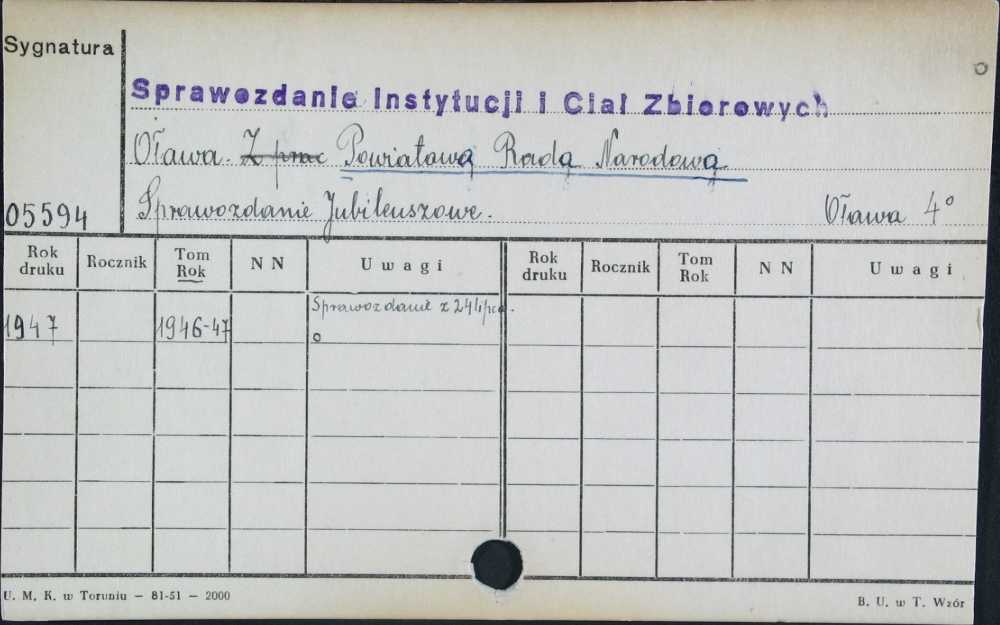 Sygnatura
Sprawozdanie Instytucji i Ciał Zbiorowych
Oława. Z prac Powiatową Radą Narodową
05594 Sprawozdanie Jubileuszowe. Oława 4°
Rok druku Rocznik Tom Rok N N Uwagi Rok druku Rocznik Tom Rok N N Uwagi
Sprawozdanie z
1947 1946-47
U. M. K. w Toruniu — 81-51 — 2000
B. U. w T. Wzór